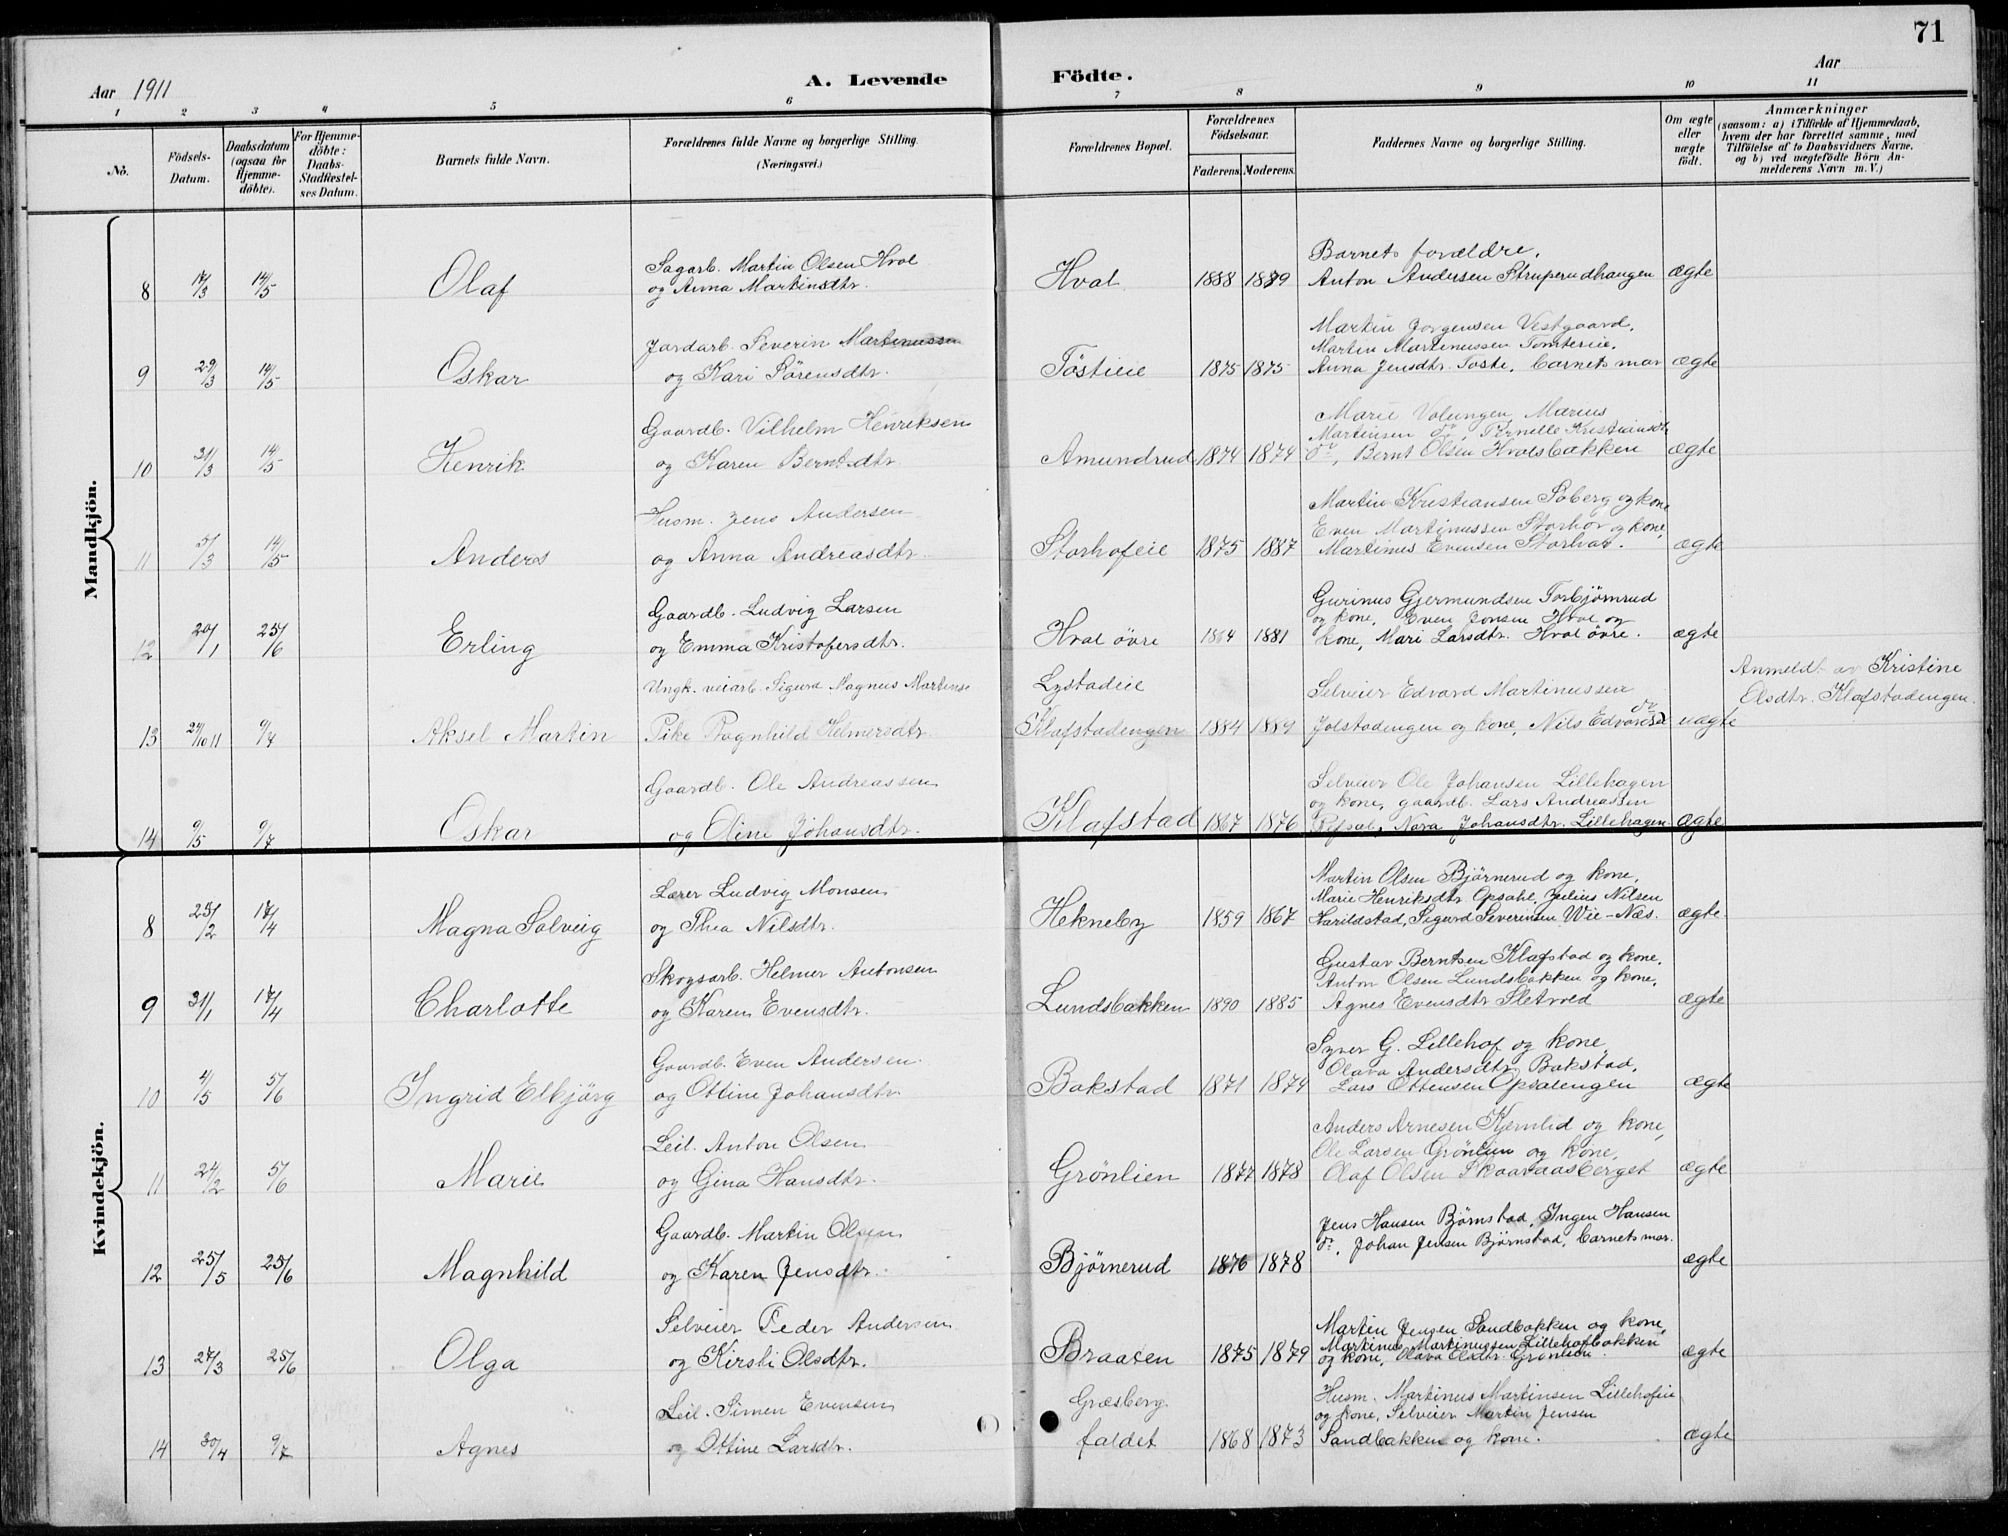 71
Aar 1911
A. Levende Födte.
Aar
1 2 3 4 5 6 7 8 9 10 11
No.
Födsels-Datum.
Daabsdatum (ogsaa for Hjemme-döbte).
For Hjemme-döbte: Daabs-Stadfæstel-ses Datum.
Barnets fulde Navn.
Forældrenes fulde Navne og borgerlige Stilling.
(Næringsvei.)
Forældrenes Bopæl.
Forældrenes Födselsaar.
Faderens. Moderens.
Faddernes Navne og borgerlige Stilling.
Om ægte eller uægte födt.
Anmærkninger
(saasom: a) i Tilfælde af Hjemmedaab,
hvem der har forrettet samme, med
Tilföielse af to Daabsvidners Navne,
og b) ved uægtefödte Börn An-
melderens Navn m. V.)
Mandkjön.
8 17/3 14/5 Olaf
Sagarb. Martin Olsen Hval
og Anna Martinsdtr.
Hval 1888 1889
Barnets forældre,
Anton Andersen Struperudhaugen ægte
9 29/3 14/5 Oskar
Jordarb. Severin Martinussen
og Kari Sörensdtr.
Töstieie 1875 1875
Martin Jorgensen Vestgaard,
Martin Martinussen Tomtereie,
Anna Jensdtr. Toste, barnets mor ægte
10 31/3 14/5 Henrik
Gaardb. Vilhelm Henriksen
og Karen Berntsdtr
Amundrud 1874 1874
Marie Volungen, Marius
Martinsen do, Pernelle Kristiansdtr
do, Bernt Olsen Hvalsbakken ægte
11 5/3 14/5 Anders
Husm. Jens Andersen
og Anna Andreasdtr.
Storhofeie 1875 1887
Martin Kristiansen Soberg og kone
Even Martinussen Storhov og kone,
Martinus Evensen Storhov. ægte
12 20/1 25/6 Erling
Gaardb. Ludvig Larsen
og Emma Kristofersdtr.
Hval övre 1864 1881
Gurinus Gjermundsen Torbjörnrud
og kone, Even Jonsen Hval og
kone, Mari Larsdtr. Hval övre. ægte
13 24/10 11 9/7 Aksel Martin
Ungk. veiarb. Sigurd Magnus Martinse
Pike Ragnhild Helmersdtr.
Lystadeie
Klafstadengen 1884 1889
Selveier Edvard Martinussen
Jolstadengen og kone, Nils Edvardsen do uægte
Anmeldt av Kristine
Olsdtr. Klafstadengen.
14 9/5 9/7 Oskar
Gaardb. Ole Andreassen
og Oline Johansdtr.
Klafstad 1867 1876
Selveier Ole Johansen Lillehagen
og kone, gaardb. Lars Andreassen
Nora Johansdtr. Lillehagen. ægte
Kvindekjön.
8 25/2 17/4 Magna Solveig
Lærer Ludvig Monsen
og Thea Nilsdtr.
Hekneby 1859 1867
Martin Olsen Björnerud og kone,
Marie Henriksdtr Opsahl, Julius Nilsen
Harildstad, Sigurd Severinsen Wie-Næs. ægte
9 31/1 17/4 Charlotte
Skogsarb. Helmer Antonsen
og Karen Evensdtr.
Lundsbakken 1890 1885
Gustav Berntsen Klafstad og kone,
Anton Olsen Lundsbakken og kone,
Agnes Evensdtr Sletvold ægte
10 4/5 5/6 Ingrid Elbjörg
Gaardb. Even Andersen
og Ottine Johansdtr.
Bakstad 1871 1874
Syver G. Lillehof og kone,
Olava Andersdtr Bakstad,
Lars Ottensen Opsalengen ægte
11 24/2 5/6 Marie
Leil. Anton Olsen
og Gina Hansdtr.
Grönlien 1877 1878
Anders Arnesen Kjernlid og kone,
Ole Larsen Grönlien og kone,
Olaf Olsen Skaaraasberget ægte
12 25/5 25/6 Magnhild
Gaardb. Martin Olsen
og Karen Jensdtr.
Björnerud 1876 1878
Jens Hansen Björnstad, Ingen Hansen
do, Johan Jensen Björnstad, barnets mor. ægte
13 27/3 25/6 Olga
Selveier Peder Andersen
og Kirsti Olsdtr.
Braaten 1875 1879
Martin Jensen Sandbakken og kone,
Martinus Martinussen Lillehofbakken
og kone, Olava Olsdtr. Grönlien. ægte
14 30/4 9/7 Agnes
Leil. Simen Evensen
og Ottine Larsdtr.
Græsberg
faldet 1868 1873
Husm. Martinus Martinsen Lillehofeie
og kone, Selveier Martin Jensen
Sandbakken og kone. ægte